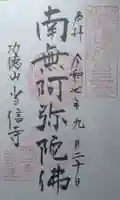 奉拝 令和七年九月二十日
南無阿弥陀佛
功徳山 当信寺